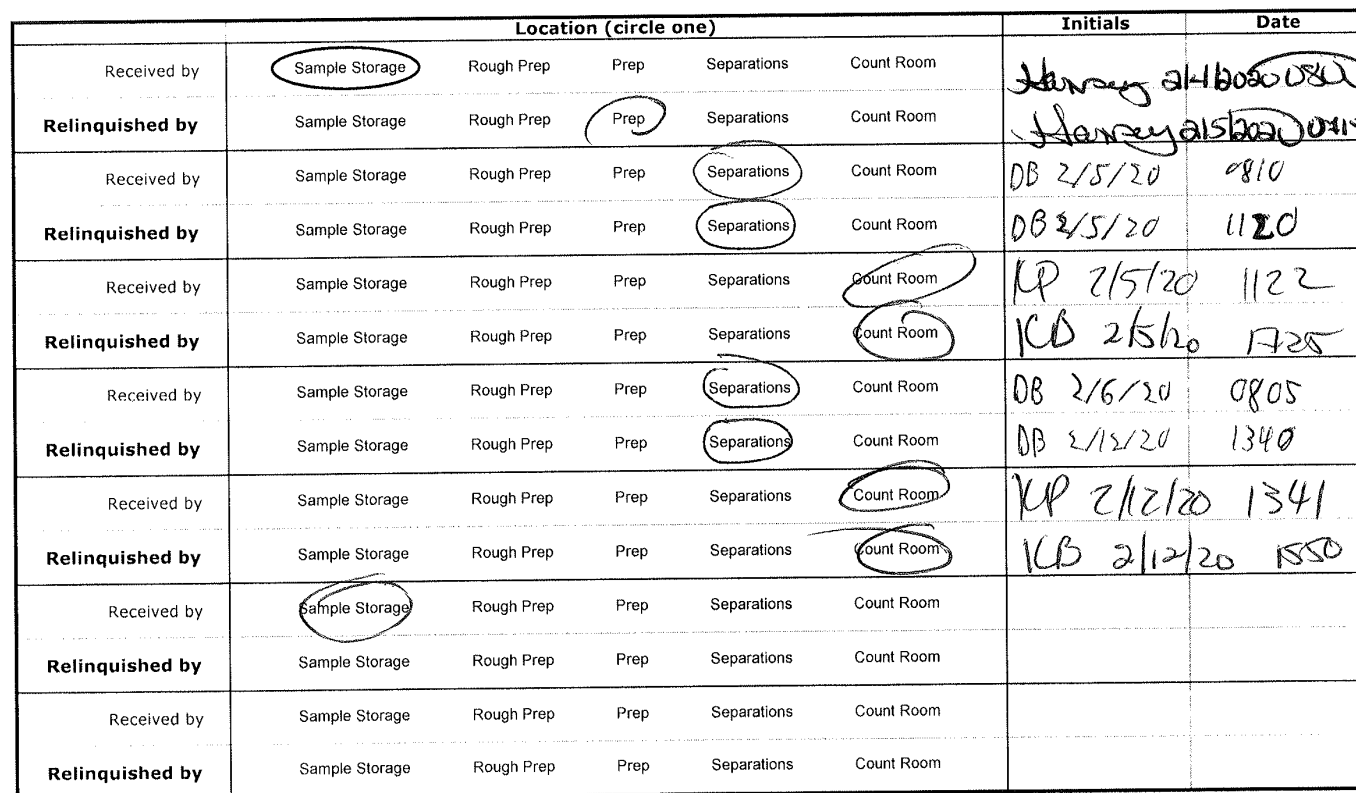 Location (circle one) Initials Date
Received by Sample Storage Rough Prep Prep Separations Count Room 2/4/2020
Relinquished by Sample Storage Rough Prep Prep Separations Count Room 2/5/2020
Received by Sample Storage Rough Prep Prep Separations Count Room DB 2/5/20 0810
Relinquished by Sample Storage Rough Prep Prep Separations Count Room DB 2/5/20 1120
Received by Sample Storage Rough Prep Prep Separations Count Room KP 2/5/20 1122
Relinquished by Sample Storage Rough Prep Prep Separations Count Room KB 2/5/20 1725
Received by Sample Storage Rough Prep Prep Separations Count Room DB 2/6/20 0805
Relinquished by Sample Storage Rough Prep Prep Separations Count Room DB 2/12/20 1340
Received by Sample Storage Rough Prep Prep Separations Count Room KP 2/12/20 1341
Relinquished by Sample Storage Rough Prep Prep Separations Count Room KB 2/12/20 1550
Received by Sample Storage Rough Prep Prep Separations Count Room
Relinquished by Sample Storage Rough Prep Prep Separations Count Room
Received by Sample Storage Rough Prep Prep Separations Count Room
Relinquished by Sample Storage Rough Prep Prep Separations Count Room